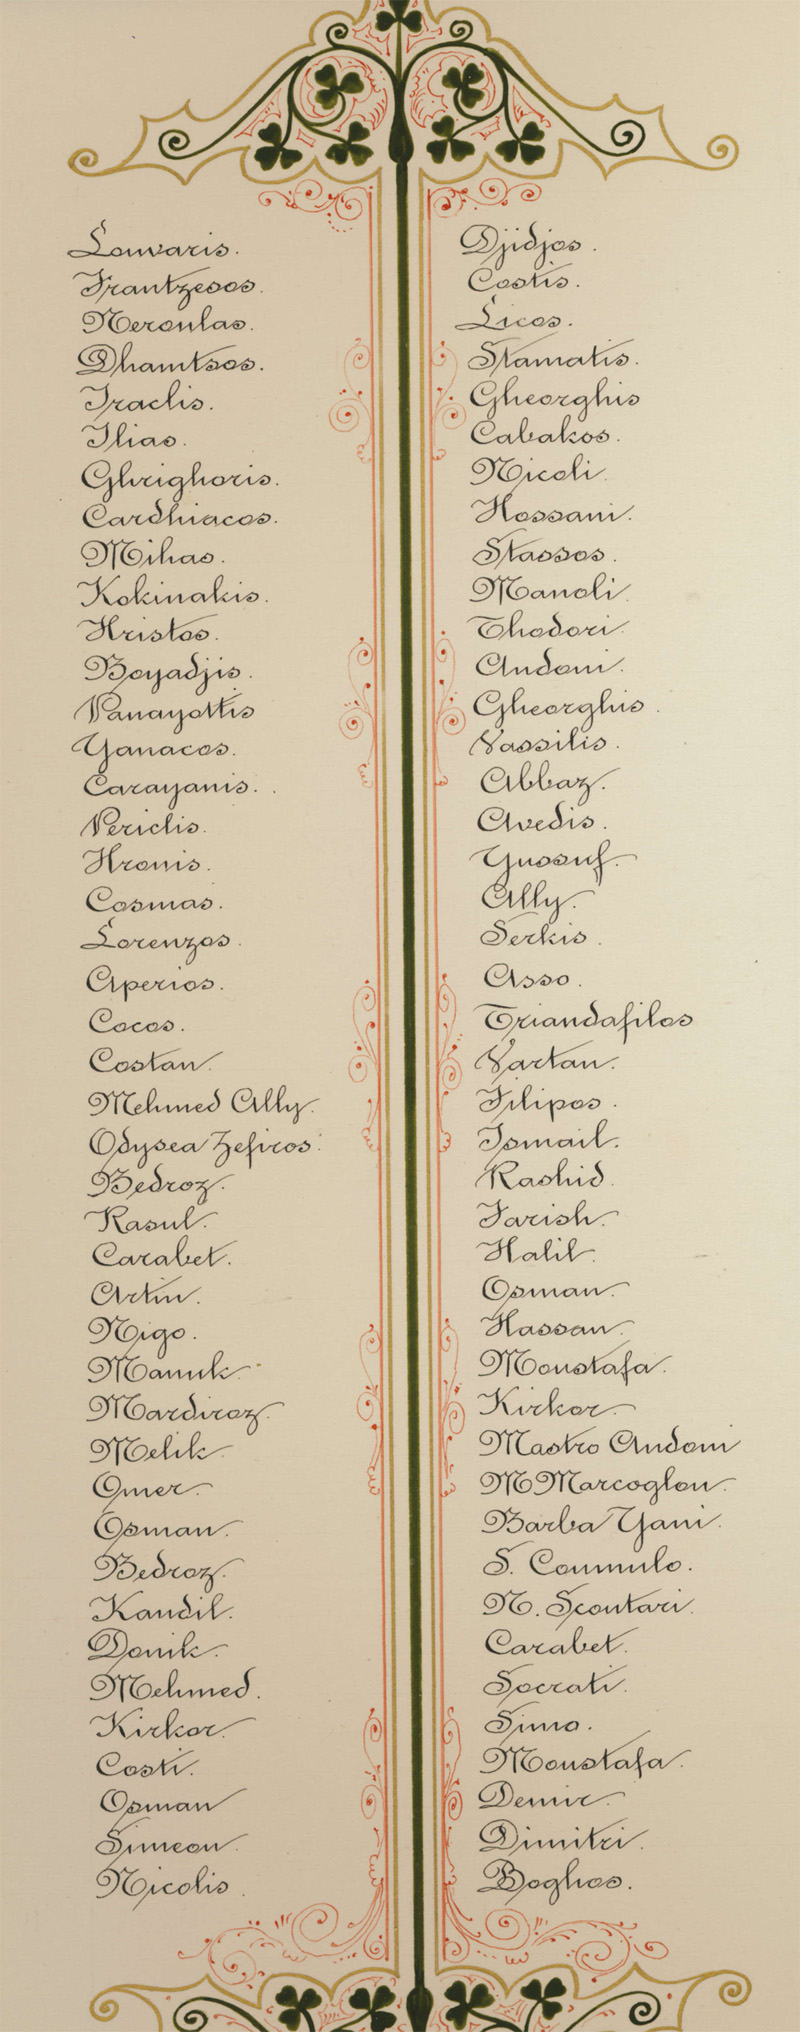 Louvaris.
Frantzesos.
Neroulas.
Dhamtsos.
Iraclis.
Ilias.
Ghrighoris.
Cardhiacos.
Mihas.
Kokinakis.
Hristos.
Boyadjis.
Panayottis
Yanacos.
Carayanis.
Periclis.
Hronis.
Cosmas.
Lorenzos.
Aperios.
Cocos.
Costan.
Mehmed Ally.
Odysea Zefiros.
Bedroz.
Rasul.
Carabet.
Artin.
Nigo.
Manuk.
Mardiroz.
Melik.
Omer.
Osman.
Bedroz.
Kandil.
Donik.
Mehmed.
Kirkor.
Costi.
Osman
Simeon.
Nicolis.
Djidjos.
Costis.
Licos.
Stamatis.
Gheorghis
Cabakos.
Nicoli.
Hossani.
Stassos.
Manoli.
Thodori.
Andoni.
Gheorghis.
Vassilis.
Abbaz.
Avedis.
Yussuf.
Ally.
Serkis.
Asso.
Triandafilos
Vartan.
Filipos.
Ismail.
Rashid.
Farish.
Halil.
Osman.
Hassan.
Moustafa.
Kirkor.
Mastro Andoni
M Marcoglou.
Barba Yani.
S. Coumulo.
N. Scoutari.
Carabet.
Socrati.
Simo.
Moustafa.
Demir.
Dimitri.
Boghos.